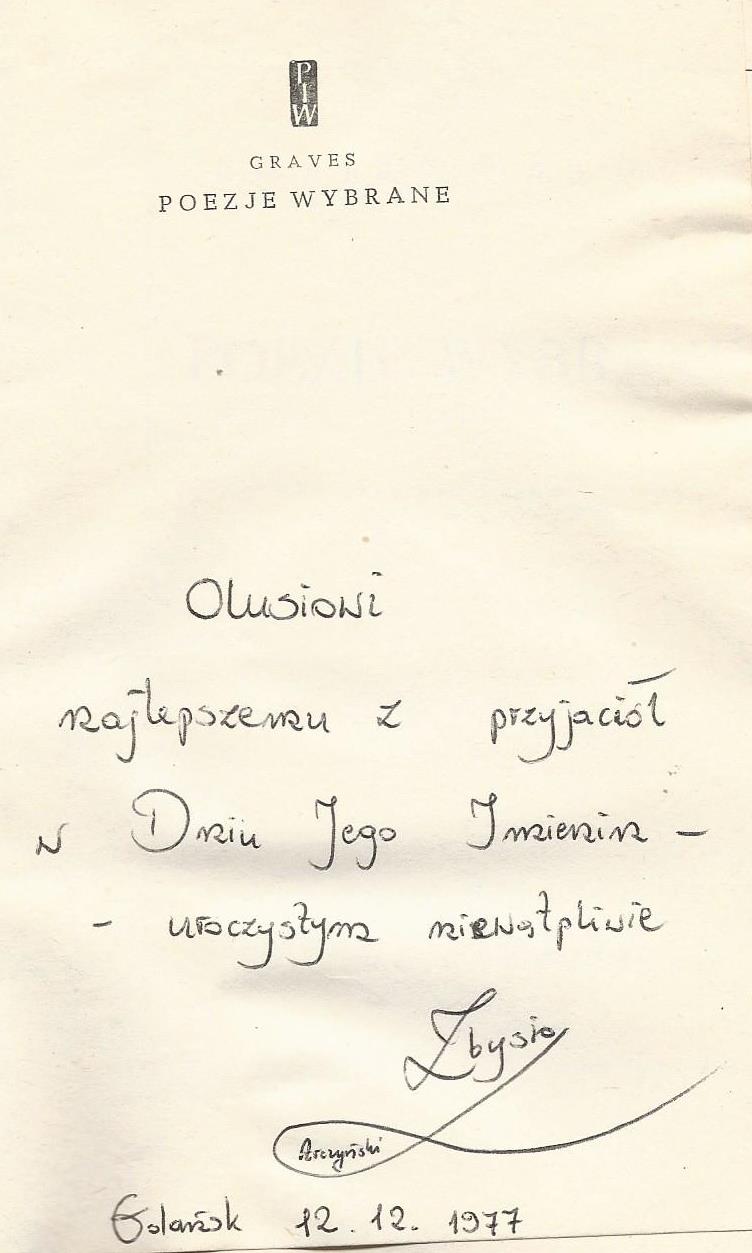 P
I
W
GRAVES
POEZJE WYBRANE
Olusiowi
najlepszemu z przyjaciół
w Dniu Jego Imienin –
– uroczystym niewątpliwie
Zbysio
Arczyński
Gdańsk 12.12.1977